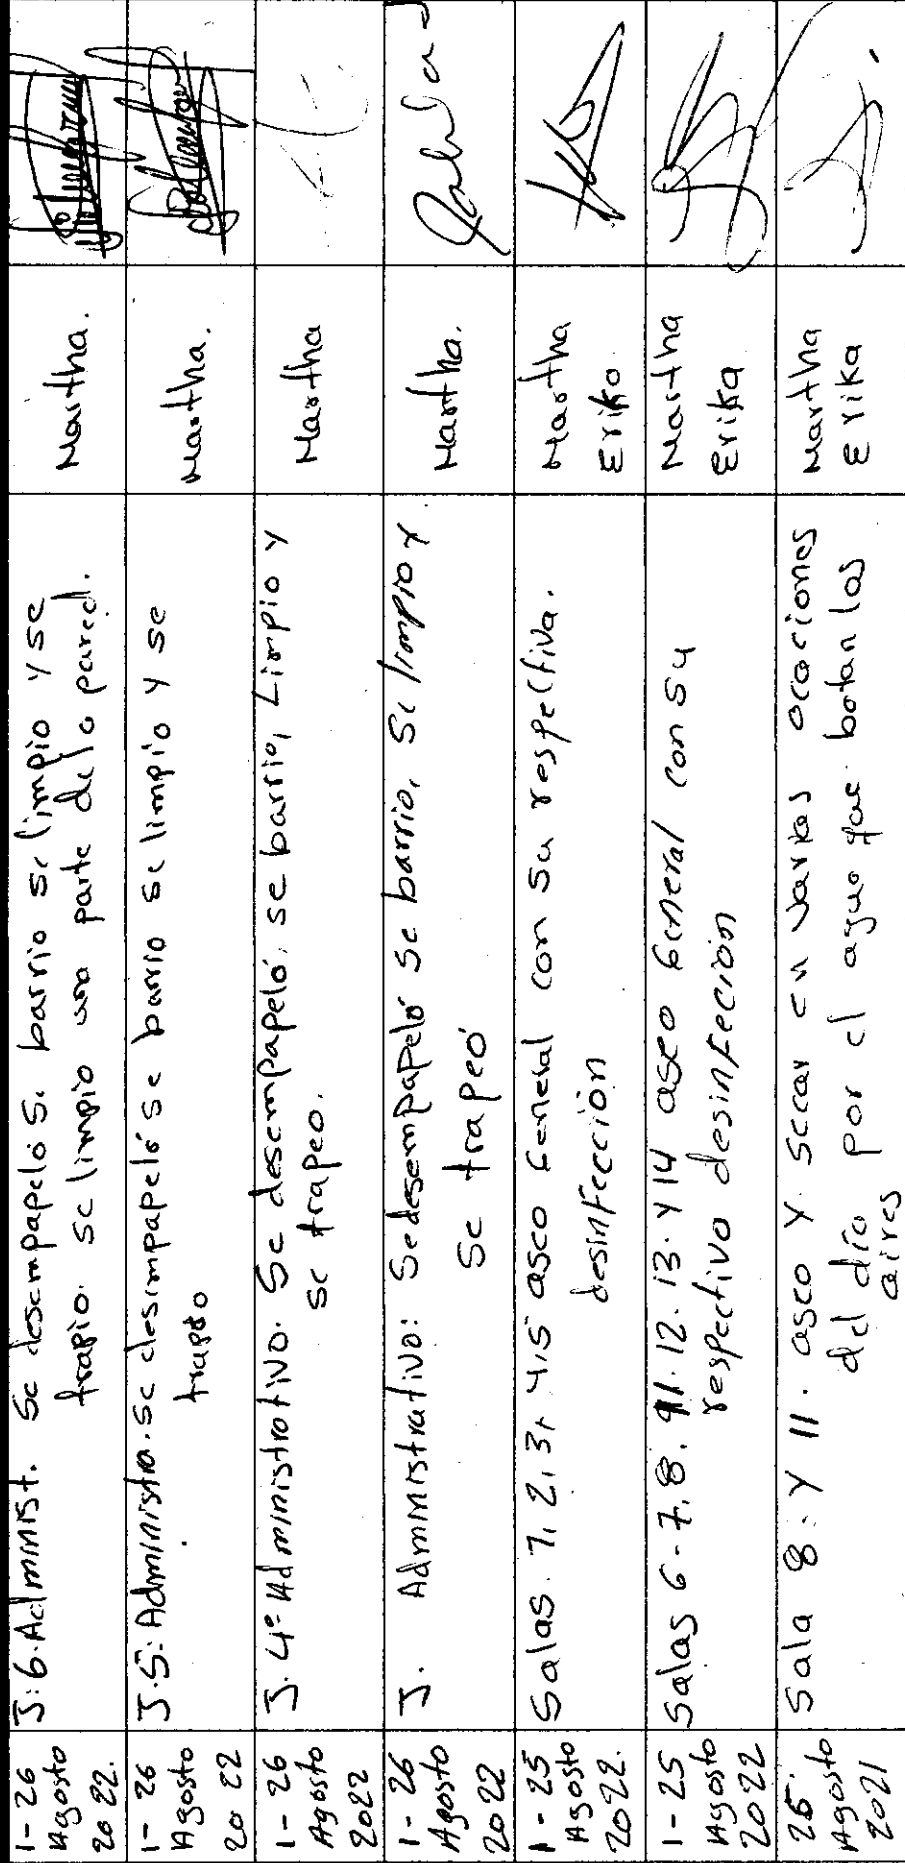 1-26 Agosto 2022.
J:6. Administ. Se desempapeló se barrio se limpio y se
trapio. se limpio una parte de la pared.
Martha.
1-26 Agosto 2022
J.5: Administra. Se desimpapeló se barrio se limpio y se
trapeo
Martha.
1-26 Agosto 2022
J.4º Administrativo. Se desempapeló, se barrio, Limpio y
se trapeo.
Martha
1-26 Agosto 2022
J. Administrativo: Se desempapeló se barrio, se limpio y
se trapeó
Martha.
1-25 Agosto 2022.
Salas. 1, 2, 3, 4, 5 aseo General con su respectiva.
desinfección
Martha
Erika
1-25 Agosto 2022
Salas 6-7.8. 11. 12. 13. y 14 aseo General con su
respectivo desinfeción
Martha
Erika
25 Agosto 2021
Sala 8: y 11. aseo y secar en varias ocaciones
del día por el agua que botan los
aires
Martha
Erika